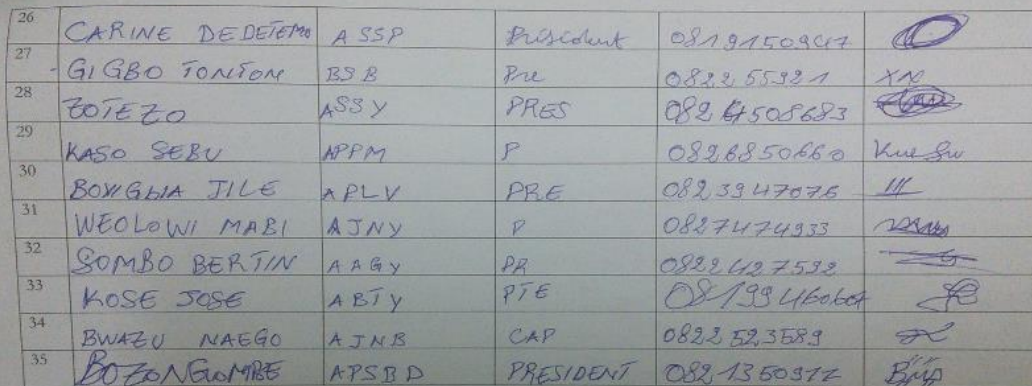 26 CARINE DEDETEMO ASSP Président 0819150947
27 - GIGBO TONTON BSB Pre 082255921 XX
28 ZOTEZO ASSY PRES 0824508683
29 KASO SEBU APPM P 0826850660
30 BOXIGLIA JILE APLV PRE 0823947076 III
31 WEOLOWI MABI AJNY P 0827474933
32 SOMBO BERTIN AAGY PR 0822427592
33 KOSE JOSE ABTY PTE
34 BWAZU NAEGO AJNB CAP 0822523589
35 BOZONGOMBE APSBD PRESIDENT 0821350977 BMP